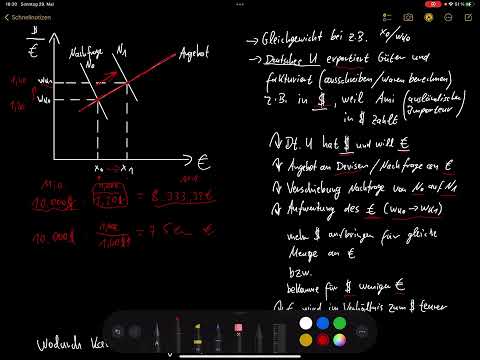 16:20 Sonntag 29. Mai
51 %
Schnellnotizen
$
€
Nachfrage
N0
N1
Angebot
WK1
WK0
x0 → x1
€
Mio
10.000$
= 8.333,33€
10.000$
= 7
€
Wodurch
→ Gleichgewicht bei z.B. x0/WK0
→ Deutscher U exportiert Güter und
fakturiert (ausschreiben/Waren berechnen)
z.B. in $, weil Ami (ausländischer Importeur)
in $ zahlt
Dt. U hat $ und will €
Angebot an Devisen/Nachfrage an €
Verschiebung Nachfrage von N0 auf N1
Aufwertung des € (WK0→WK1)
mehr $ aufbringen für gleiche
Menge an €
bzw.
bekomme für $ weniger €
€ wird im Verhältnis zum $ teurer